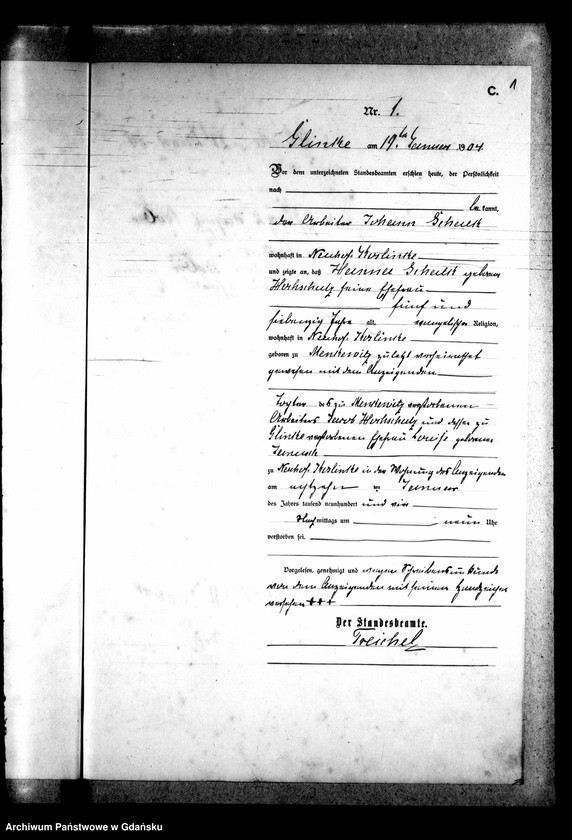 C. 1
Nr. 1.
Glinke am 19.ten Januar 1904
Vor dem unterzeichneten Standesbeamten erschien heute, der Persönlichkeit
nach
be kannt,
der Arbeiter Johann
wohnhaft in Neuhof
und zeigte an, daß geborene
seine Ehefrau
fünf und
siebenzig Jahre alt, evangelischer Religion,
wohnhaft in Neuhof
geboren zu zuletzt verheirathet
gewesen mit dem Anzeigenden
Tochter des zu verstorbenen
Arbeiters Jacob und dessen zu
Glinke verstorbenen Ehefrau Louise geborene
zu Neuhof in der Wohnung des Anzeigenden
am achtzehn ten Januar
des Jahres tausend neunhundert und vier
Nach mittags um neun Uhr
verstorben sei.
Vorgelesen, genehmigt und wegen Schreibensunkunde
von dem Anzeigenden mit seinem Handzeichen
versehen +++
Der Standesbeamte.
Treichel
Archiwum Państwowe w Gdańsku